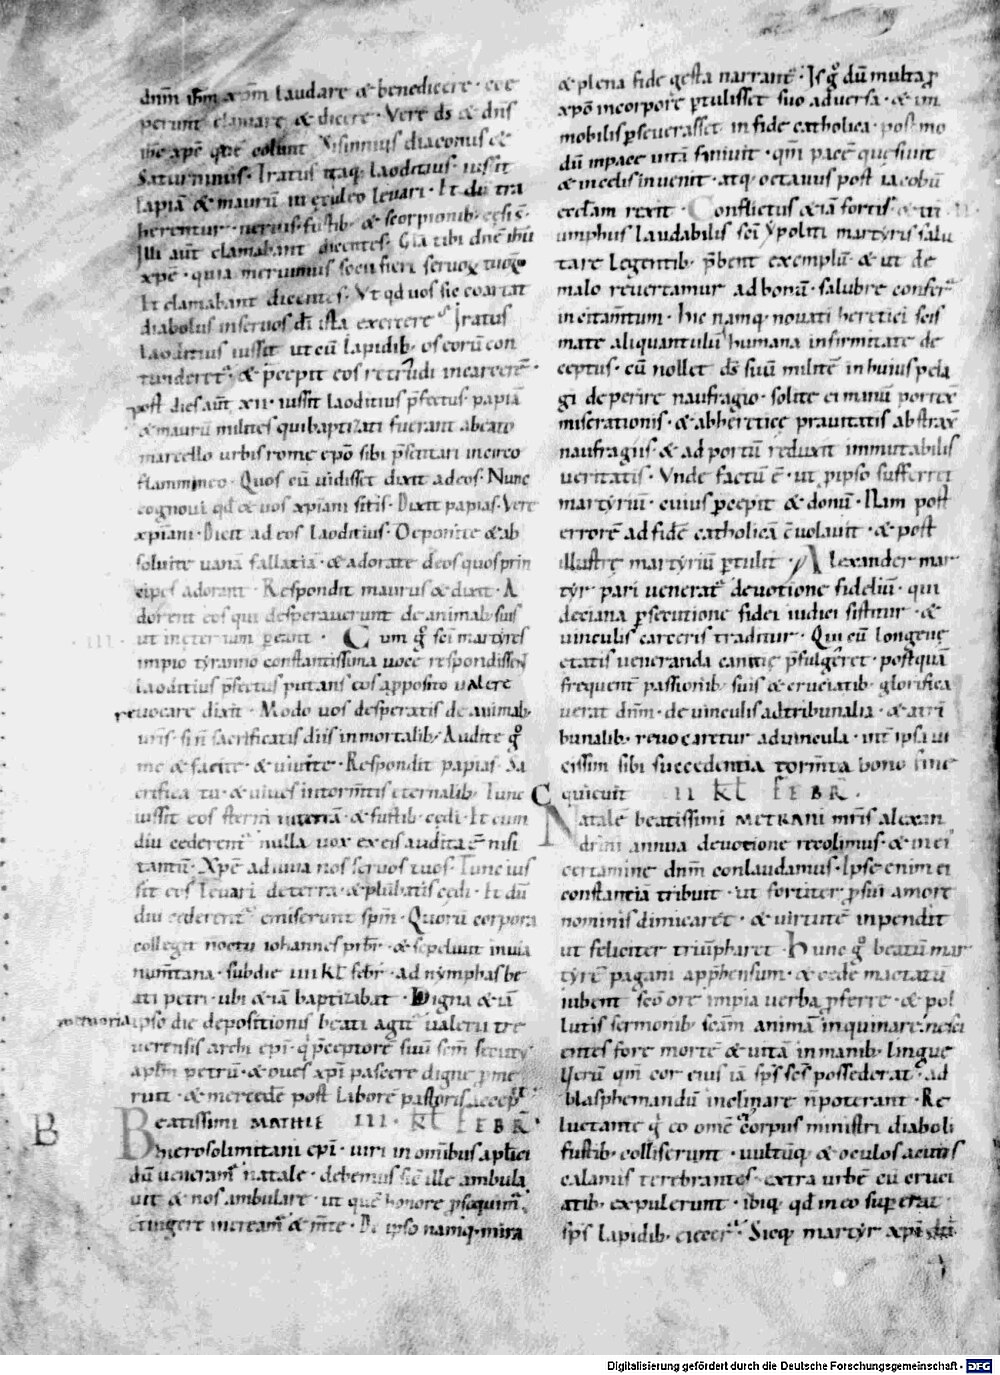 dnm ihm xpm laudare & benedicere · coe
perunt clamare & dicere · Vere ds & dns
ihc xpc que colunt Sisinnius diaconus &
Saturninus · Iratus itaq; laoditius · iussit
papiā & maurū in eculeo levari · Et dū tra
herentur · nervis · fustib; & scorpionib; cedi ·
Illi aut clamabant dicentes · Gla tibi dne ihu
xpe · quia meruimus socii fieri servoꝝ tuoꝝ
Et clamabant dicentes · Vt qd vos sic coartat
diabolus in servos di ista exercere · Iratus
laoditius iussit ut cū lapidib; os eorū con
tunderet · & p̄cepit eos retrudi in carcerē ·
post dies aut XII · iussit laoditius p̄fectus · papiā
& maurū milites qui baptizati fuerant a beato
marcello urbis rome epo sibi p̄sentari in circo
flammineo · Quos cū vidisset dixit ad eos · Nunc
cognovi qd & vos xpiani sitis · Dixit papias · Vere
xpiani · Dicit ad eos laoditius · Deponite & ab
solvite vanā fallatiā · & adorate deos quos prin
cipes adorant · Respondit maurus & dixit · A
dorent eos qui desperaverunt de animab; suis
ut in eternum pereant · Cum gͦ sci martyres
impio tyranno constantissima voce respondissent
laoditius p̄fectus putans eos a pposito valere
revocare dixit · Modo vos desperatis de animab;
vris · si n sacrificatis diis inmortalib; Audite gͦ
me & facite · & vivite · Respondit papias · Sa
crifica tu · & vives in tormtis eternalib; Tunc
iussit eos sterni in terrā · & fustib; cedi · Et cum
diu cederent nulla vox ex eis audita ē nisi
tantū · Xpe adiuva nos servos tuos · Tunc ius
sit eos levari de terra · & plūbatis cedi · Et dū
diu cederent emiserunt spm · Quorū corpora
collegit noctu iohannes prbr · & sepelivit in via
numtana · sub die IIII kl febr · ad nymphas be
ati petri · ubi & iā baptizabat · Digna & iā
memoria ipso die depositionis beati agit valerii tre
verensis archi epi · q p̄ceptorē suū scm secutꝰ
aplm petrū · & oves xpi pascere digne p̄me
ruit · & mercedē post laborē pastoris accep
B Beatissimi MATHIE III · kl FEBR ·
hierosolimitani epi · viri in omibus aplici
dū veneram natale · debemus sic ille ambula
vit & nos ambulare · ut que honore psequimr
contingere mereamr & mte · De ipso namq; mira
& plena fide gesta narrant · Is gͦ dū multa p
xpo in corpore ptulisset suo adversa · & im
mobilis pseverasset in fide catholica · postmo
dū in pace vitā finivit · qm pacē quesivit
& in celis invenit · atq; octavus post iacobū
eccłam rexit · Conflictus & iā fortis · & tri
umphus laudabilis sci Ypoliti martyris salu
tare legentib; p̄bent exemplū & ut de
malo revertamur ad bonū · salubre confer
incitamtum · Hic namq; novati heretici scis
mate aliquantulū humana infirmitate de
ceptus · cū nollet ds suū militē in huius pela
gi de perire naufragio · solite ei manū porrex
miserationis · & ab heretice pravitatis abstrax
naufragiis · & ad portū reduxit immutabilis
veritatis · Vnde factū ē · ut p ipso sufferret
martyriū · cuius p̄cepit & donū · Nam post
errorē ad fidē catholicā cvolavit · & post
illustre martyriū ptulit · Alexander mar
tyr pari venerat devotione fideliū · qui
deciana psecutione fidei iudici sistitur · &
vinculis carceris traditur · Qui cū longeve
etatis veneranda canitie p̄fulgeret · postquā
frequent passionib; suis & cruciatib; glorifica
verat dnm · de vinculis ad tribunalia · & a tri
bunalib; revocaretur ad vincula · int ipsa vi
cissim sibi succedentia tormta bono fine
quievit II kl FEBR ·
Natale beatissimi METRANI mris alexan
drini annua devotione recolimus · & in ei
certamine dnm conlaudamus · Ipse enim ei
constantiā tribuit · ut fortiter p sui amore
nominis dimicaret · & virtutē inpendit
ut feliciter triūpharet · Hunc gͦ beatum mar
tyrē pagani app̄hensum · & cede mactatū
iubent sco ore impia verba pferre · & pol
lutis sermonib; scam animā inquinare · nesci
entes fore mortē & vitā in manib; lingue
Verū qm cor eius iā sps scs possederat · ad
blasphemandū inclinare n poterant · Re
luctante gͦ eo ome corpus ministri diaboli
fustib; colliserunt · vultūq; & oculos acutis
calamis terebrantes · extra urbē cū cruci
atib; expulerunt · ibiq; qd in eo superat
sps lapidib; eiecer · Sicq; martyr xpi
Digitalisierung gefördert durch die Deutsche Forschungsgemeinschaft · DFG